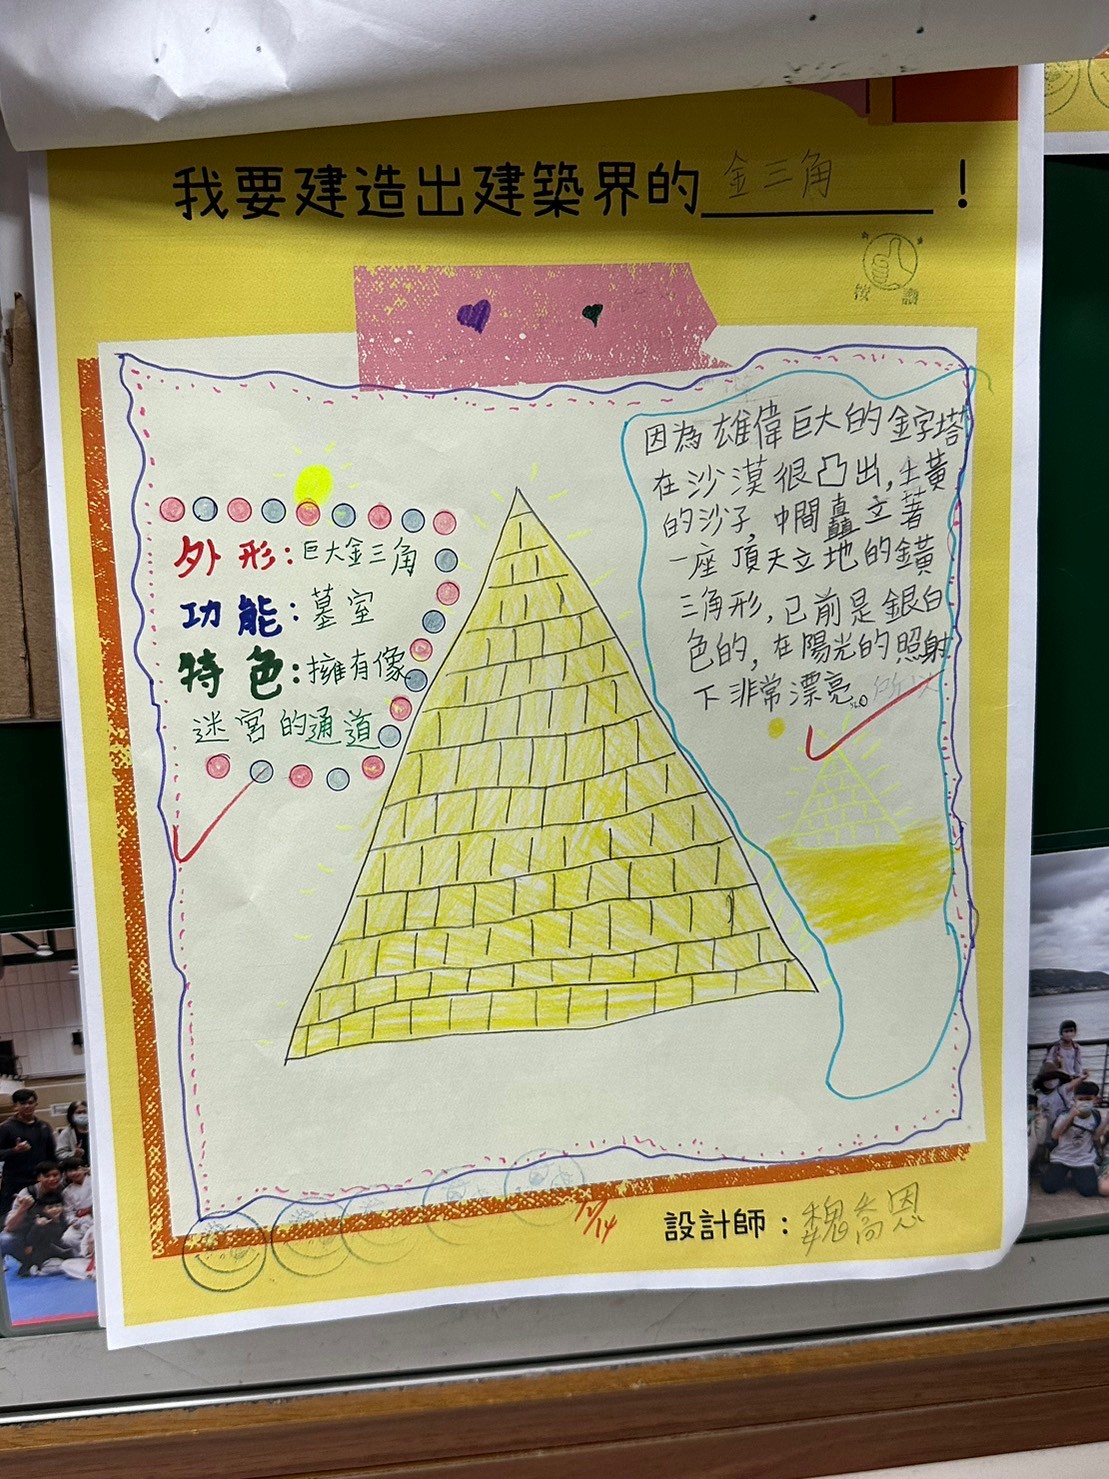 我要建造出建築界的金三角！
外形：巨大金三角
功能：墓室
特色：擁有像
迷宮的通道
因為雄偉巨大的金字塔
在沙漠很凸出，土黃
的沙子，中間矗立著
一座頂天立地的鑶
三角形，已前是銀白
色的，在陽光的照射
下非常漂亮。所以
設計師：魏喬恩